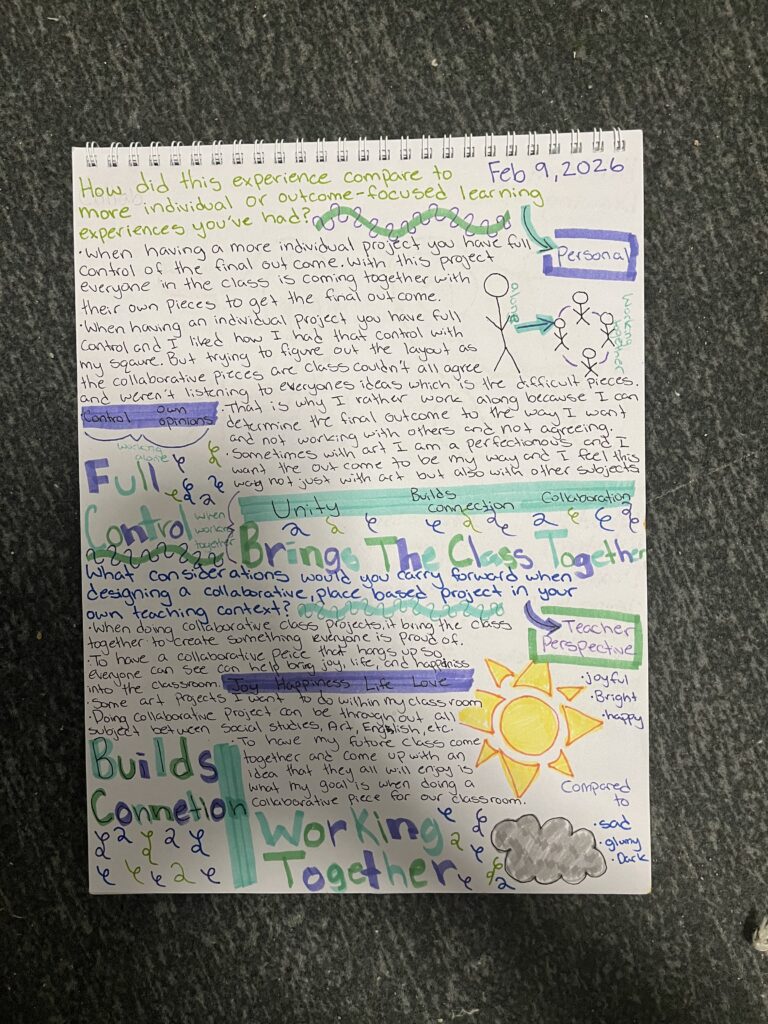 Feb 9, 2026
How did this experience compare to
more individual or outcome-focused learning
experiences you've had?
Personal
· When having a more individual project you have full
control of the final out come. With this project
everyone in the class is coming together with
their own pieces to get the final outcome.
· When having an individual project you have full
control and I liked how I had that control with
my sqaure. But trying to figure out the layout as
the collaborative pieces are class couldn't all agree
and weren't listening to everyones ideas which is the difficult pieces.
alone
working together
· That is why I rather work along because I can
determine the final outcome to the way I want
and not working with others and not agreeing.
· Sometimes with art I am a perfectionous and I
want the out come to be my way and I feel this
way not just with art but also with other subjects
Control own opinions
working alone
Full
Control
when working together
Unity Builds connection Collaboration
Brings The Class Together
What considerations would you carry forward when
designing a collaborative, place based project in your
own teaching context?
Teacher
Perspective
· When doing collaborative class projects, it bring the class
together to create something everyone is proud of.
· To have a collaborative peice that hangs up so
everyone can see can help bring joy, life, and happiness
into the classroom. Joy Happiness Life Love
· Some art projects I want to do within my classroom
· Doing collaborative project can be through out all
subject between social studies, Art, English, etc.
· To have my future class come
together and come up with an
idea that they all will enjoy is
what my goal is when doing a
collaborative piece for our classroom.
· Joyful
· Bright
· happy
Compared
to
· sad
· glumy
· Dark
Builds
Connetion
Working
Together